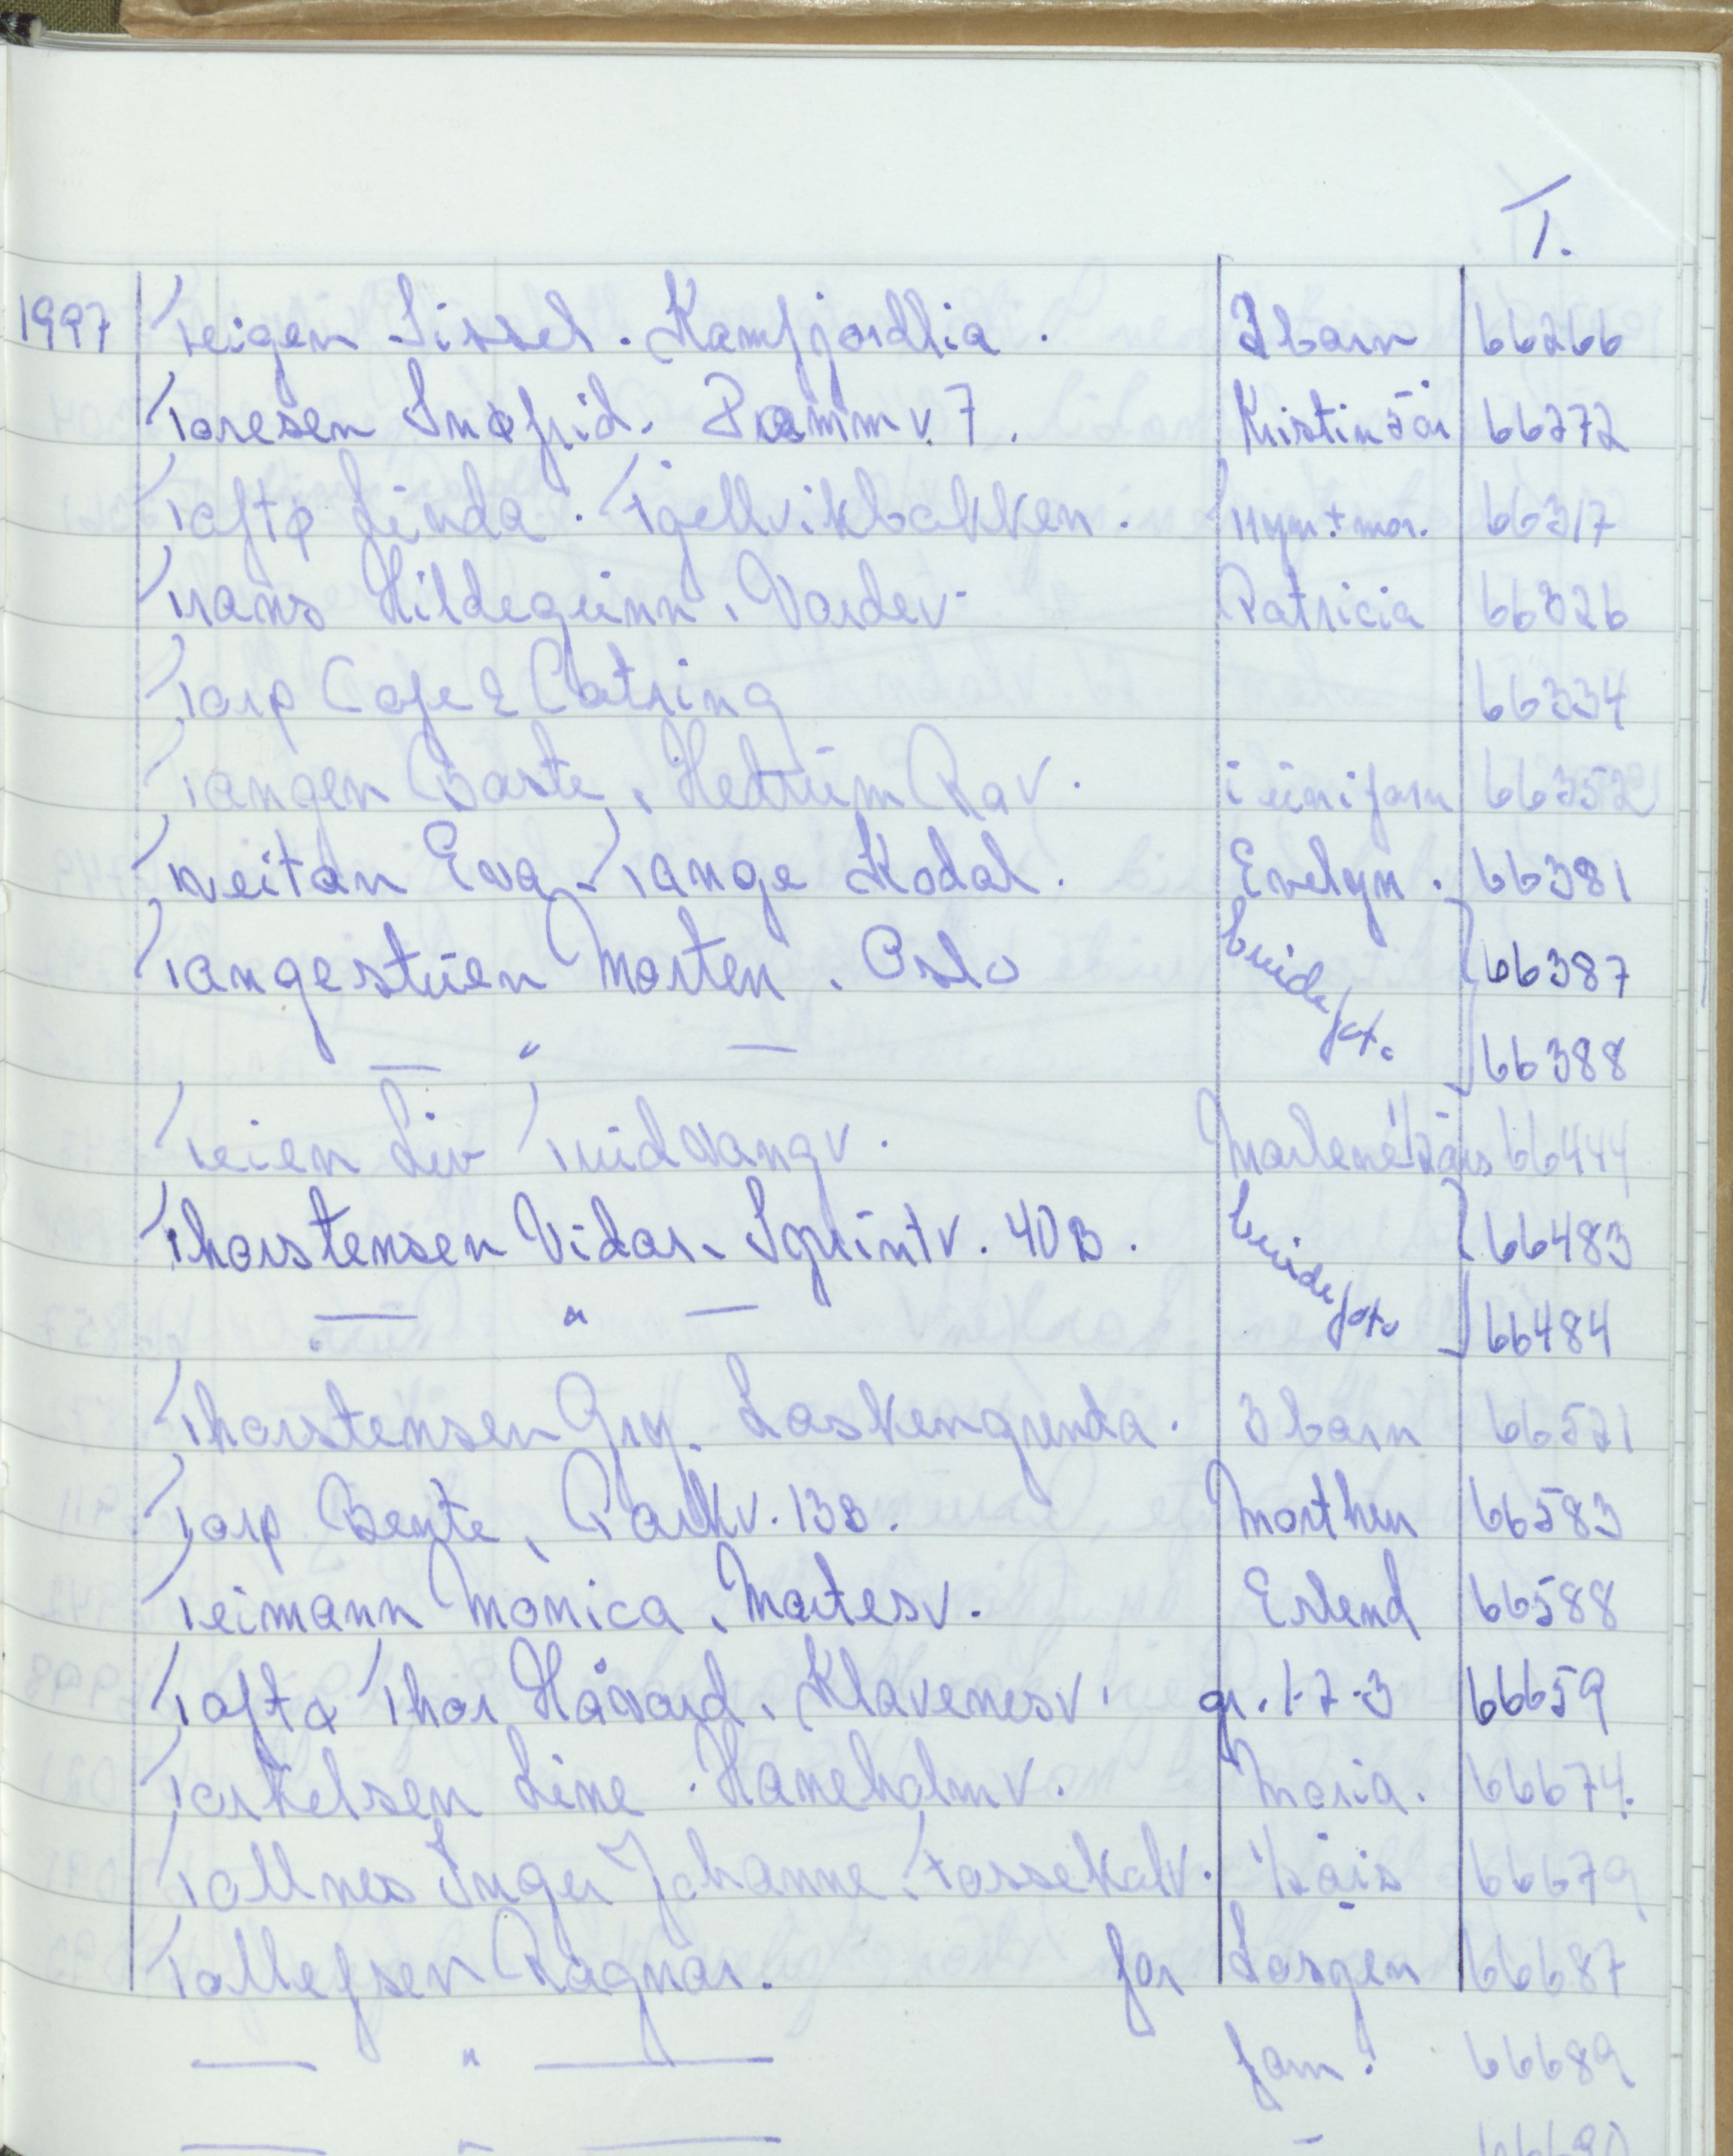 T.
1997 Teigen Sissel. Kamfjordlia. 2 barn 66266
Toresen Snøfrid. Pramm v. 7. Kristin 5 år 66272
Tofte Linda. Tjellvikbakken. 11 mn + mor. 66317
Trans Hildegunn, Vardev. Patricia 66326
Torp Cafe & Catring 66334
Tangen Børte, Hedrum Rav. i uniform 66352
Tveitan Eva - Tange Kodal. Evelyn. 66381
Tangestuen Morten. Oslo brudefoto 66387
— " — 66388
Teien Liv Tuidvangv. Marlene 1/2 års 66444
Thorstensen Vidar, Spruntv. 40B. brudefoto 66483
— " — 66484
Thorstensen Gry. Laskengrenda. 3 barn 66521
Torp Bente, Parkv. 13B. Morthen 66583
Teimann Monica, Martesv. Erlend 66588
Tofte Thor Håvard, Klavenesv. gr. 1-2-3 66659
Torkelsen Line. Haneholmv. Maria. 66674.
Tollnes Inger Johanne. Fossekalv. 1/2 års 66679
Tollefsen Ragnar. for Jørgen 66687
— " — fam. 66689
— " — - 66690